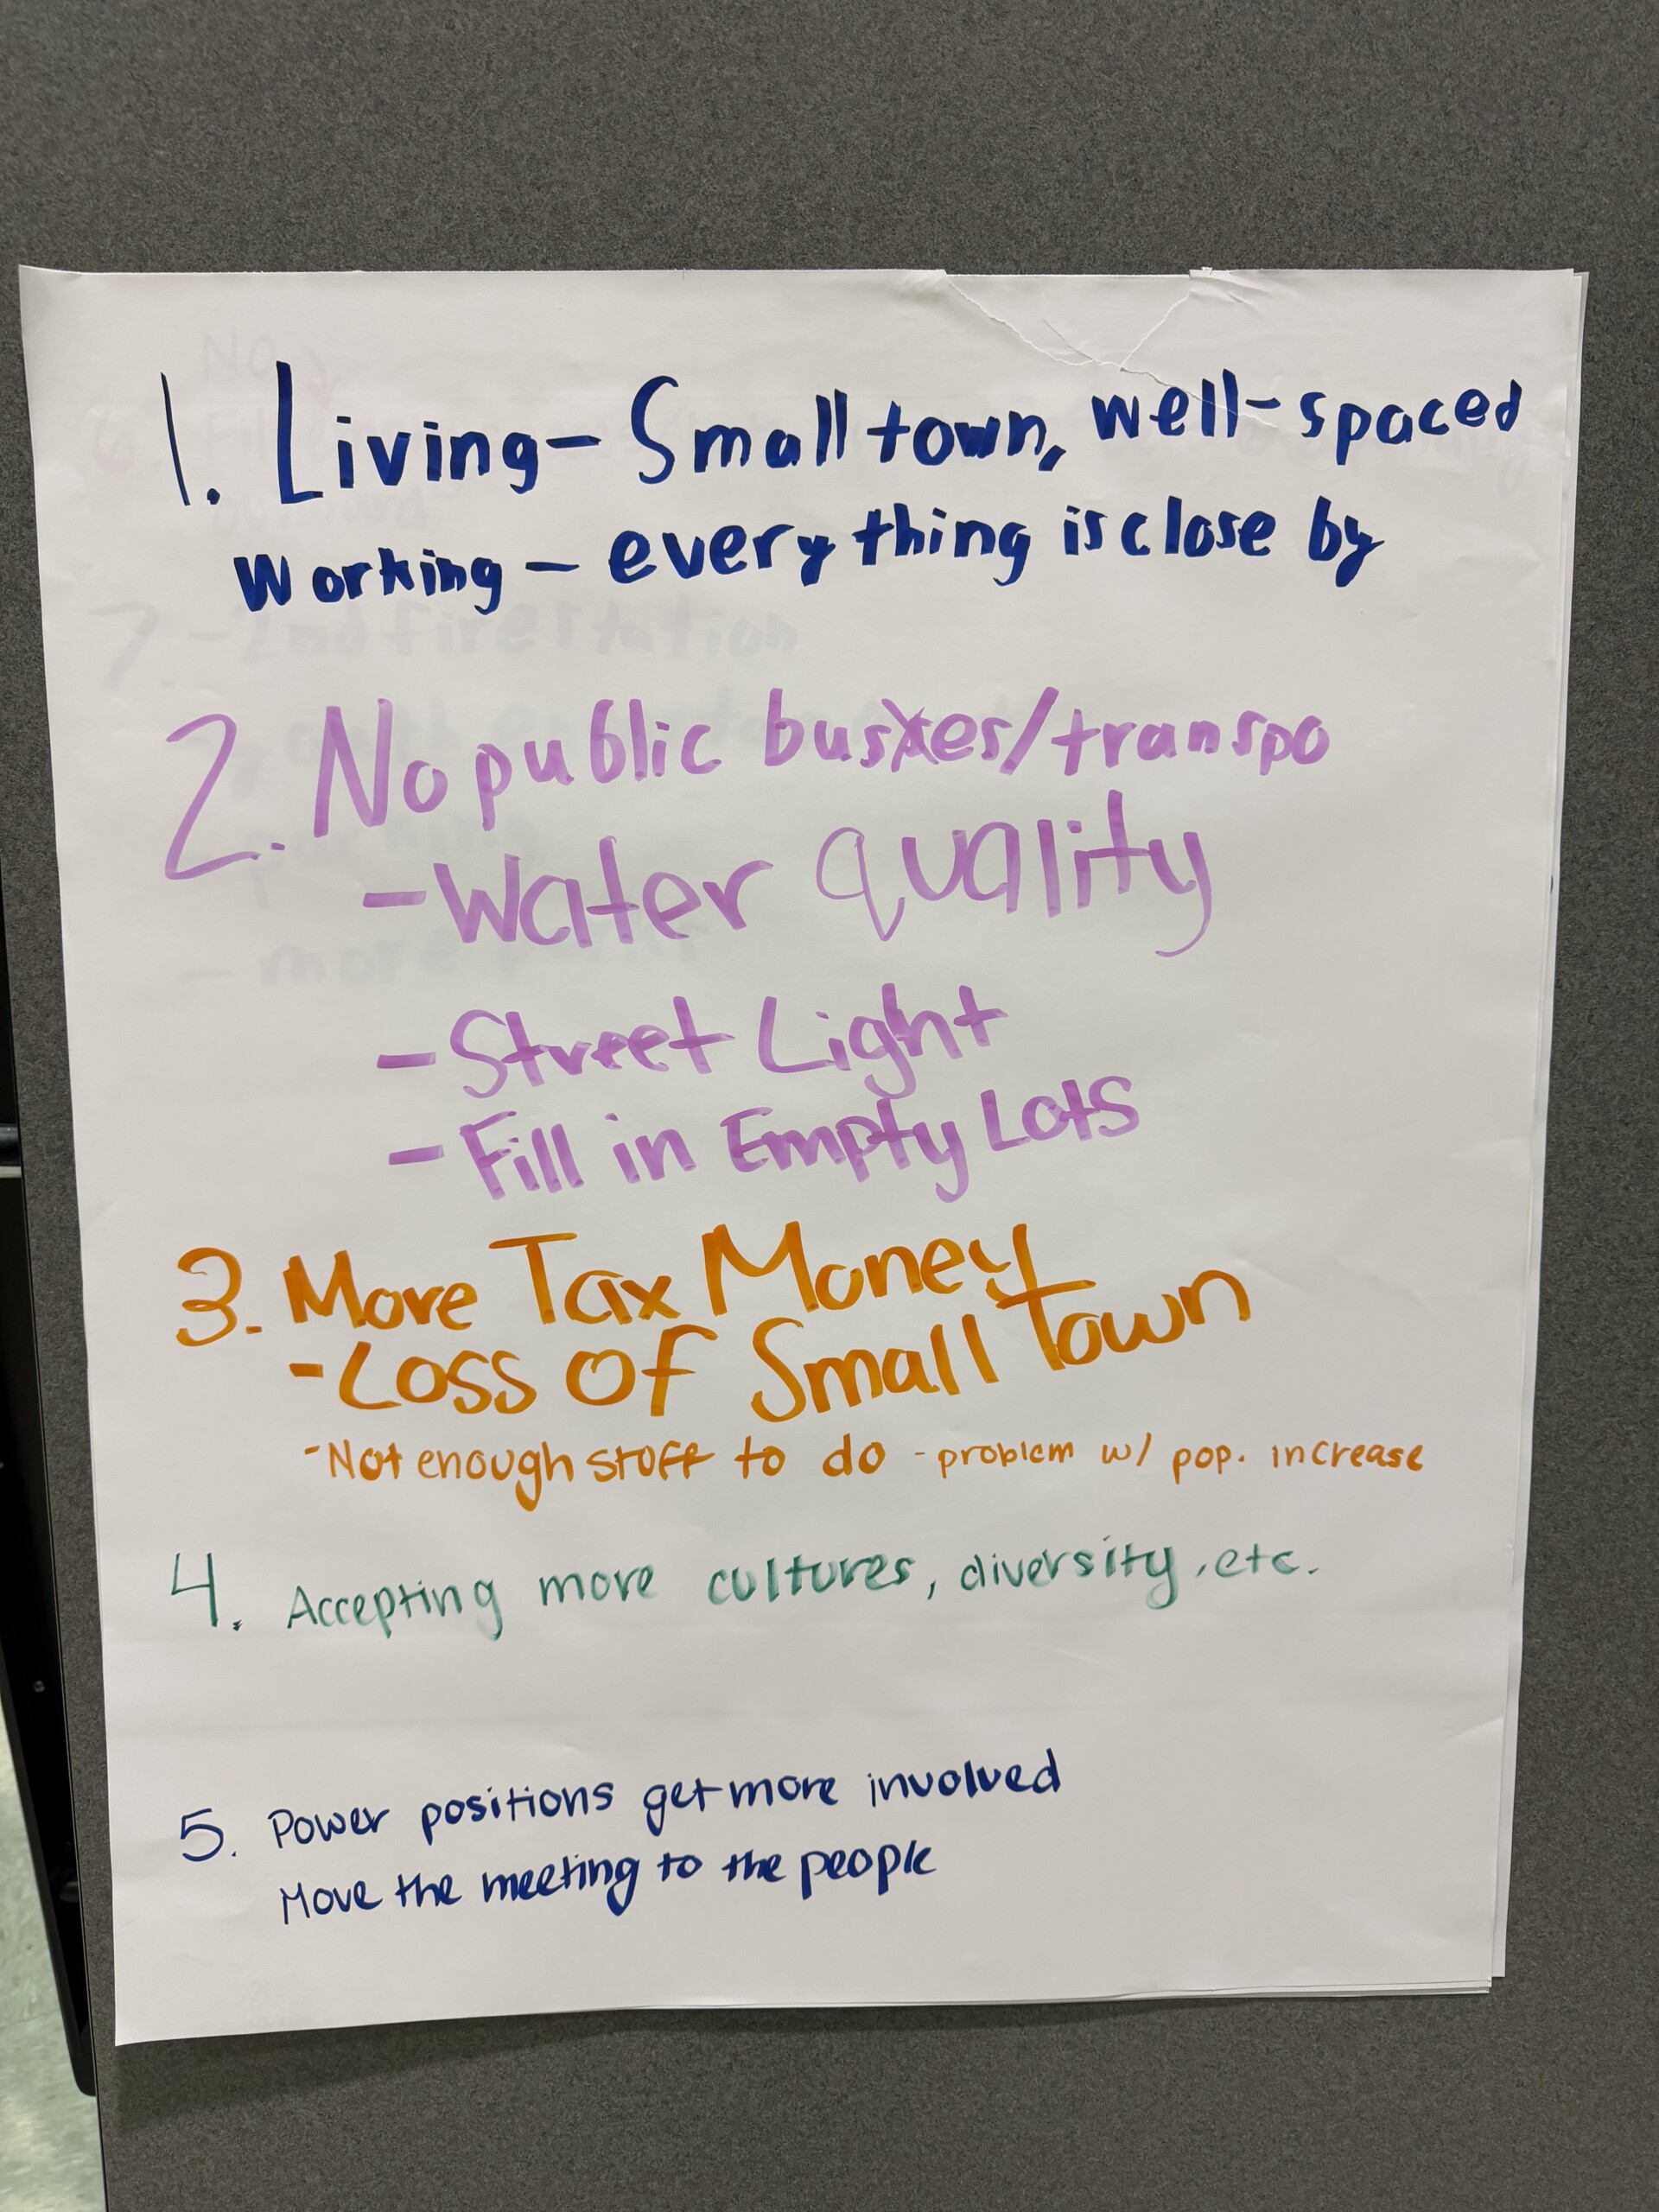 1. Living - Small town, well-spaced
Working - everything is close by
2. No public buses/transpo
- Water quality
- Street Light
- Fill in Empty Lots
3. More Tax Money
- Loss of Small Town
- Not enough stuff to do - problem w/ pop. increase
4. Accepting more cultures, diversity, etc.
5. Power positions get more involved
Move the meeting to the people
7. - 2nd fire station
- more